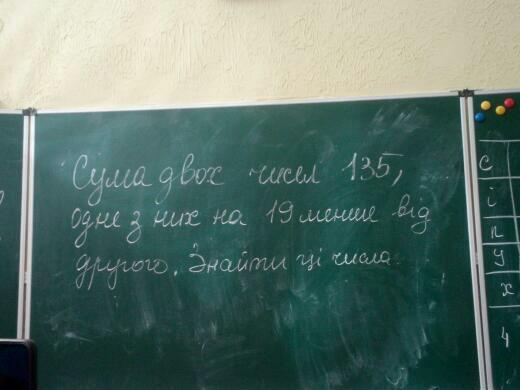 Сума двох чисел 135,
одне з них на 19 менше від
другого. Знайти ці числа.
С
і
п
у
х
4